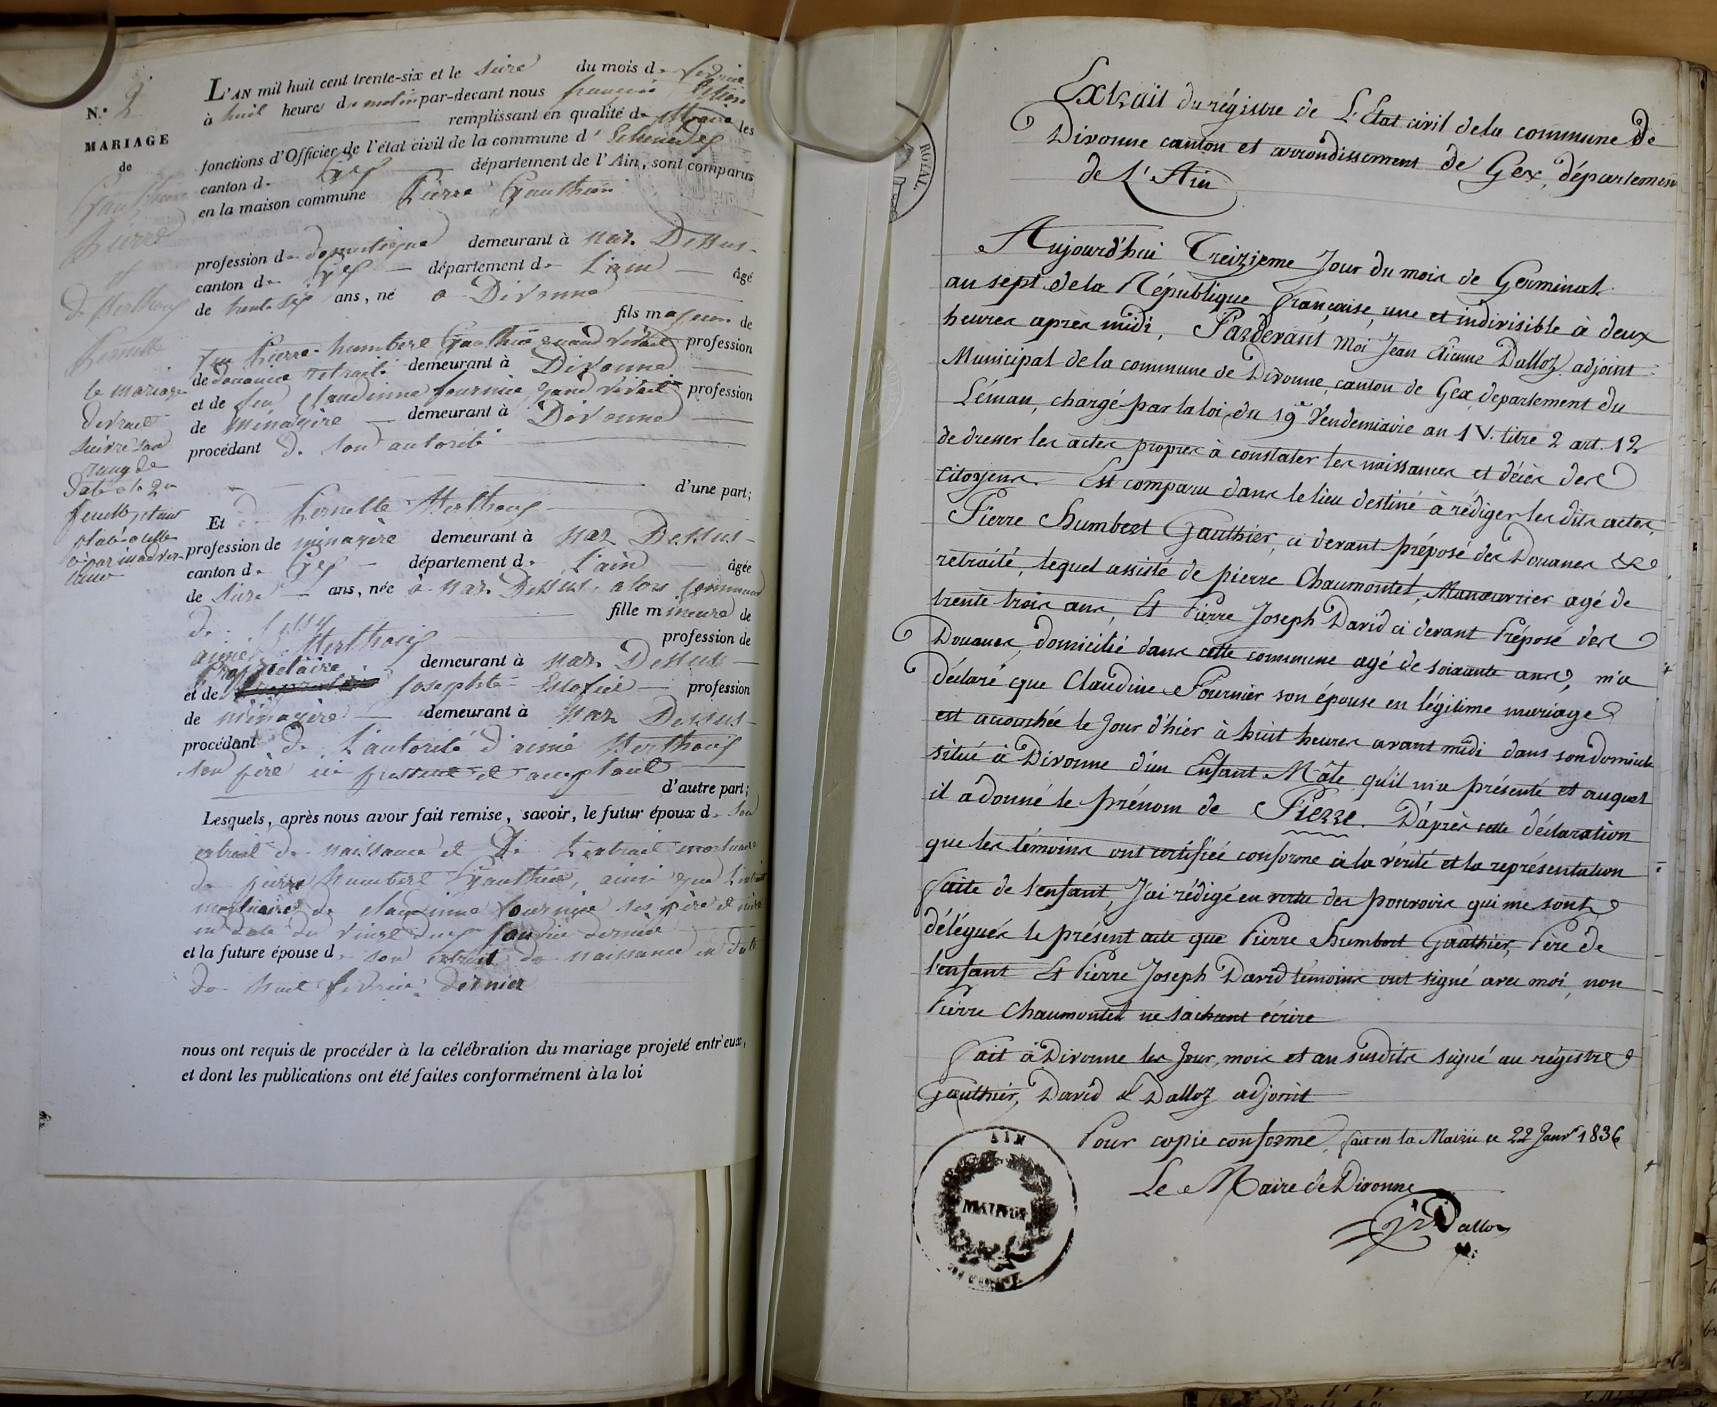 N.° 2
MARIAGE
de
Gauthier
Pierre
et
de Berthoud
Pernette
le mariage
devrait
suivre son
rang de
date
L'AN mil huit cent trente-six et le seize du mois de février
à huit heures du matin par-devant nous françois
remplissant en qualité de Maire les
fonctions d'Officier de l'état civil de la commune d'Echenevex
canton de Gex département de l'Ain, sont comparus
en la maison commune Pierre Gauthier
profession de domestique demeurant à Naz-Dessus
canton de Gex département de l'ain âgé
de trente six ans, né à Divonne
fils majeur de
feu Pierre-humbert Gauthier quand vivait profession
de douanier retraité demeurant à Divonne
et de feu Claudinne fournier quand vivait profession
de Ménagère demeurant à Divonne
procédant de son autorité
d'une part;
Et de Pernette
profession de ménagère demeurant à Naz Dessus
canton de Gex département de l'ain âgée
de ans, née à Naz Dessus, alors commune
de
fille mineure de
aimé profession de
propriétaire demeurant à Naz Dessus
et de Josephte profession
de ménagère demeurant à Naz Dessus
procédant de l'autorité d'aimé
son père ici présent et acceptant
d'autre part;
Lesquels, après nous avoir fait remise, savoir, le futur époux de son
extrait de naissance et de l'extrait mortuaire
de pierre humbert Gauthier, ainsi que l'extrait
mortuaire de claudinne fournier ses père et mère
en date du vingt deux janvier dernier
et la future épouse de son extrait de naissance en date
de huit février dernier
nous ont requis de procéder à la célébration du mariage projeté entr'eux,
et dont les publications ont été faites conformément à la loi
ROYAL
Extrait du régistre de L'Etat civil de la commune de
Divonne canton et arrondissement de Gex, département
de L'Ain
Aujourd'hui Treizieme Jour du mois de Germinal
an sept de la République française, une et indivisible à deux
heures après midi, Pardevant Moi Jean Etienne Dalloz adjoint
Municipal de la commune de Divonne, canton de Gex département du
Léman, chargé par la loi du 19e Vendemiaire an IV. titre 2 art. 12
de dresser les actes propres à constater les naissances et décès des
Citoyens. Est comparu dans le lieu destiné à rédiger les dits actes,
Pierre Humbert Gauthier, ci devant préposé des Douanes &
retraité, lequel assisté de pierre Chaumontet, Manœuvrier agé de
trente trois ans, Et Pierre Joseph David ci devant Préposé des
Douanes, domicilié dans cette commune agé de soixante ans, m'a
déclaré que Claudine Fournier son épouse en légitime mariage
est accouchée le Jour d'hier à huit heures avant midi dans son domicile
situé à Divonne d'un Enfant Mâle qu'il m'a présenté et auquel
il a donné le prénom de Pierre. D'après cette déclaration
que les témoins ont certifiée conforme à la vérité et la représentation
faite de l'enfant, J'ai rédigé en vertu des pouvoirs qui me sont
délégués le présent acte que Pierre Humbert Gauthier, Père de
l'enfant Et Pierre Joseph David témoins ont signé avec moi, non
Pierre Chaumontet ne sachant écrire
Fait à Divonne les Jour, mois et an susdits signé au régistre
Gauthier, David & Dalloz adjoint
Pour copie conforme, fait en la Mairie ce 22 Janvr 1836
Le Maire de Divonne
Dalloz
AIN
MAIRIE